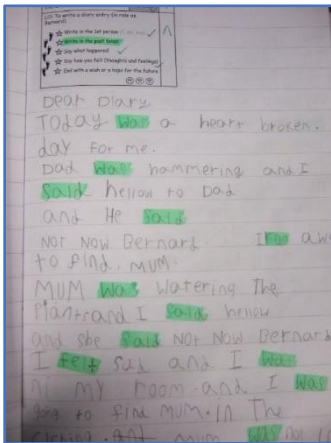 LO: To write a diary entry (in role as Bernard)
Write in the 1st person
Write in the past tense
Say what happened
Say how you felt (thoughts and feelings)
End with a wish or a hope for the future
Dear Diary
Today was a heart broken.
day for me.
Dad was hammering and I
said hellow to Dad
and He said
Not Now Bernard. I ran aw
to find, mum.
MUM was watering The
Plantrand I said hellow
and she said Not Now Bernard
I felt sad and I was
my room. and I was
to find mum. In The
mum was not